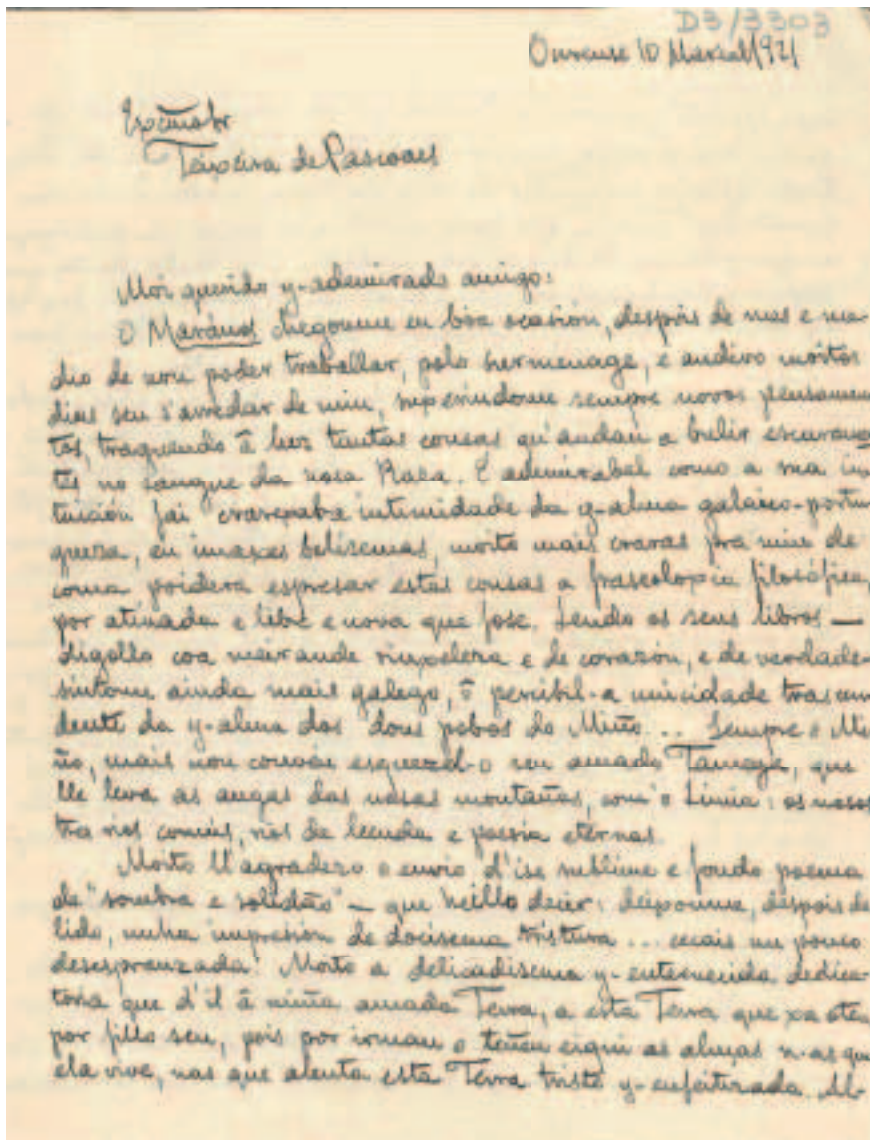 D3/3303
Ourense 10 Marzal/921
Teixeira de Pascoaes
Moi querido y-admirado amigo:
O Maránus chegoume en boa ocasión, despois de mes e me-
dio de non poder traballar, polo e andivo moitos
dias sen s'arredar de min, suxerindome sempre novos pensamen
tos, traguendo â luz tantas cousas qu'andan a bulir escuramen
tes no sangue da nosa Raza. É admirabel como a sua in
tuición fai crarexabre intimidade da y-alma galaico-portu
guesa, en imaxes belisemas, moito mais craras pra min de
coma poidera espresar estas cousas a fraseoloxia filosófica,
por atinada e libre e nova que fose. Lendo os seus libros —
digollo coa meirande sinxeleza e de corazón, e de verdade—
sintome ainda mais galego, ô percibil-a unicidade trascen
dente da y-alma dos dous pobos do Miño... Sempre o Mi
ño, mais non convén esquezel-o seu amado Tamega, que
lle leva as augas das nosas montañas, com'o Limia: os nosos
tra nos comús, nos de lenda e poesia eternas.
Moito ll'agradezo o envio d'ise sublime e fondo poema
de "sombra e solidão" — que heillo decir: deixoume, despois de
lido, unha impresión de docisema tristura... cecais un pouco
desespranzada. Moito a delicadisema y-entenrecida dedica
toria que d'il â miña amada Terra, a esta Terra que xa o ten
por fillo seu, pois por irmau o teñen eiqui as almas n-as que
ela vive, nas que alenta esta Terra triste y-enfeitizada. Al-